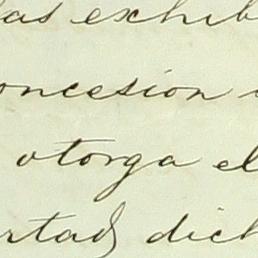 las exhib
oncesion
otorga el
rtad dich